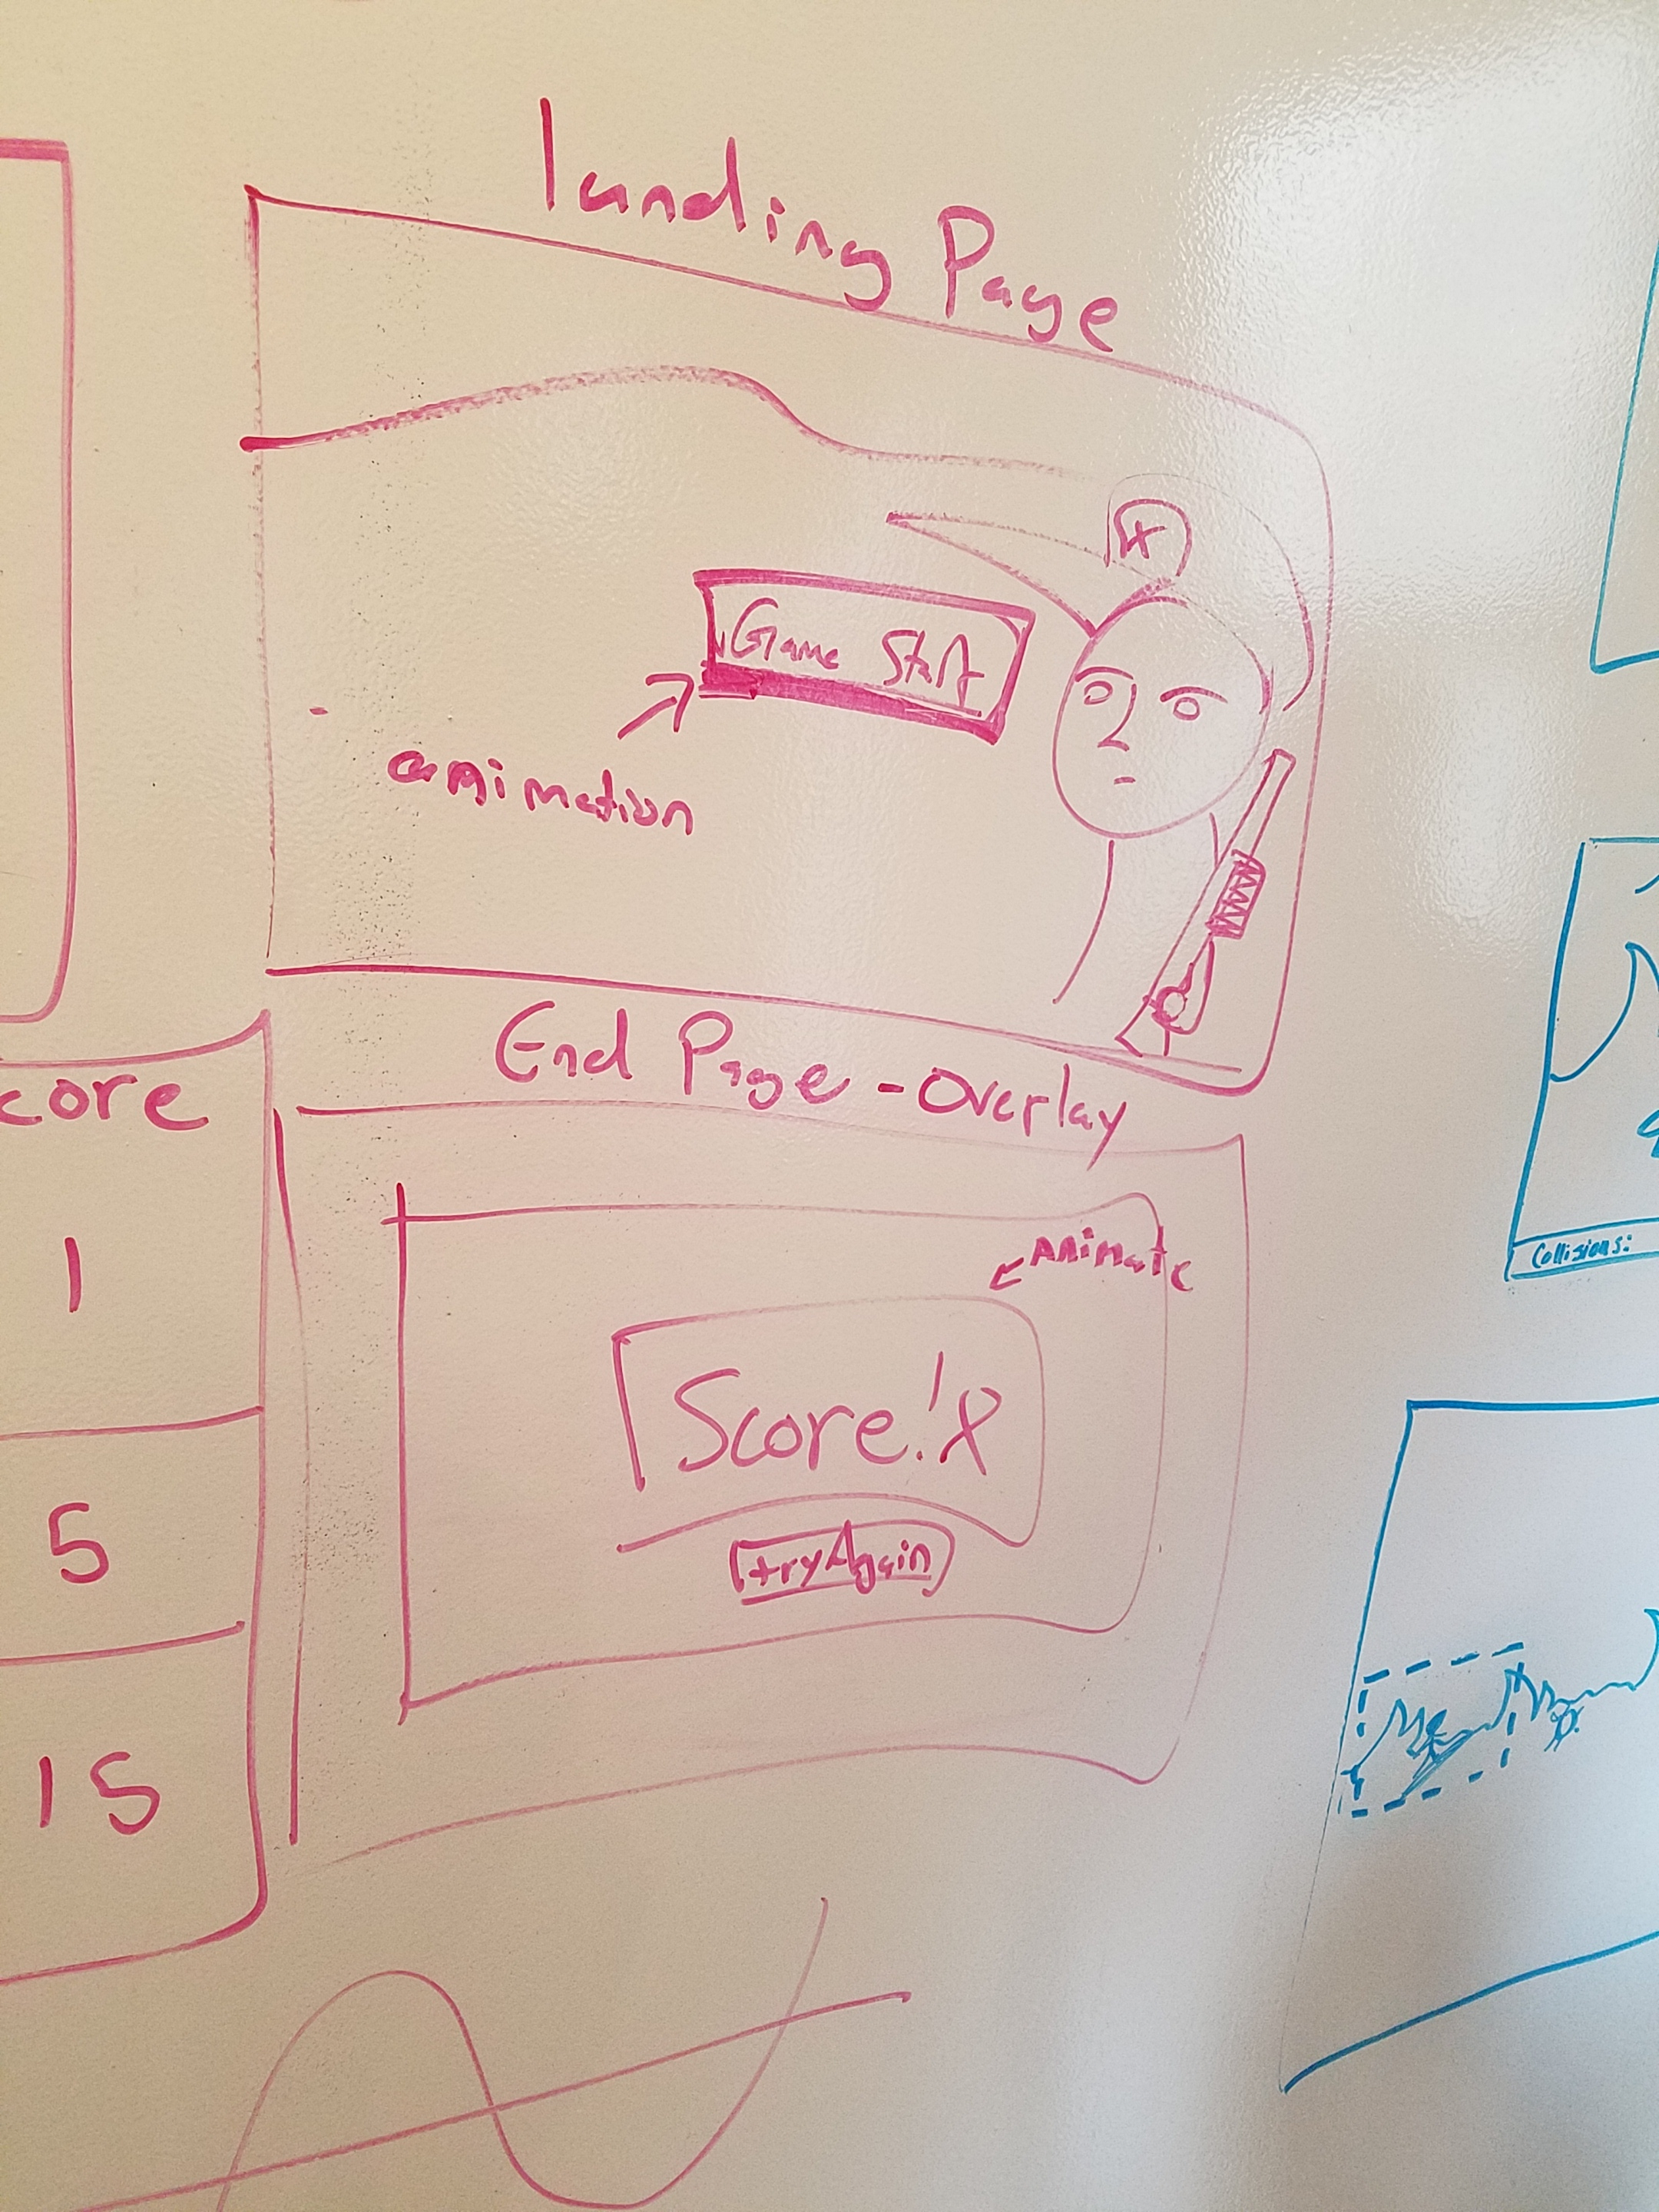 landing Page
Game Start
animation
End Page - Overlay
core
1
5
15
Animate
Score!
tryAgain
Collisions: